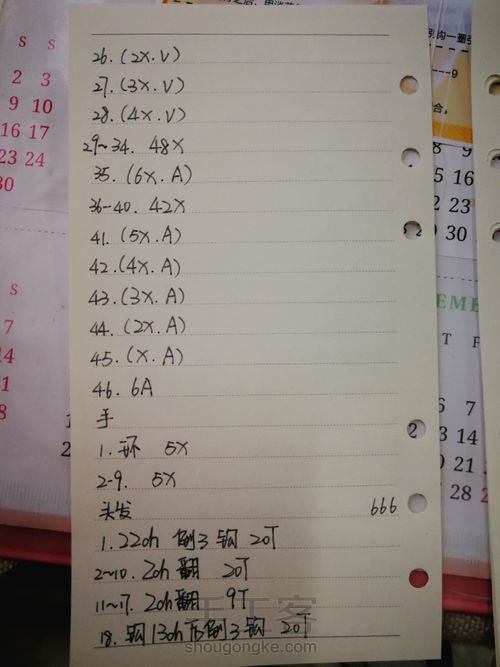 26. (2X.V)
27. (3X.V)
28. (4X.V)
29~34. 48X
35. (6X.A)
36-40. 42X
41. (5X.A)
42. (4X.A)
43. (3X.A)
44. (2X.A)
45. (X.A)
46. 6A
手
1. 环 5X
2-9. 5X
头发
666
1. 22ch 倒3 钩 20T
2~10. 2ch 翻 20T
11~17. 2ch 翻 9T
18. 钩 13ch 后 倒3 钩 20T
shougongke.com
S S
2 3
9 10
16 17
23 24
30
S
7
14
1
8
2
-9
8 9
22 23
29 30
EMBE
T F
6 7
14
21
28